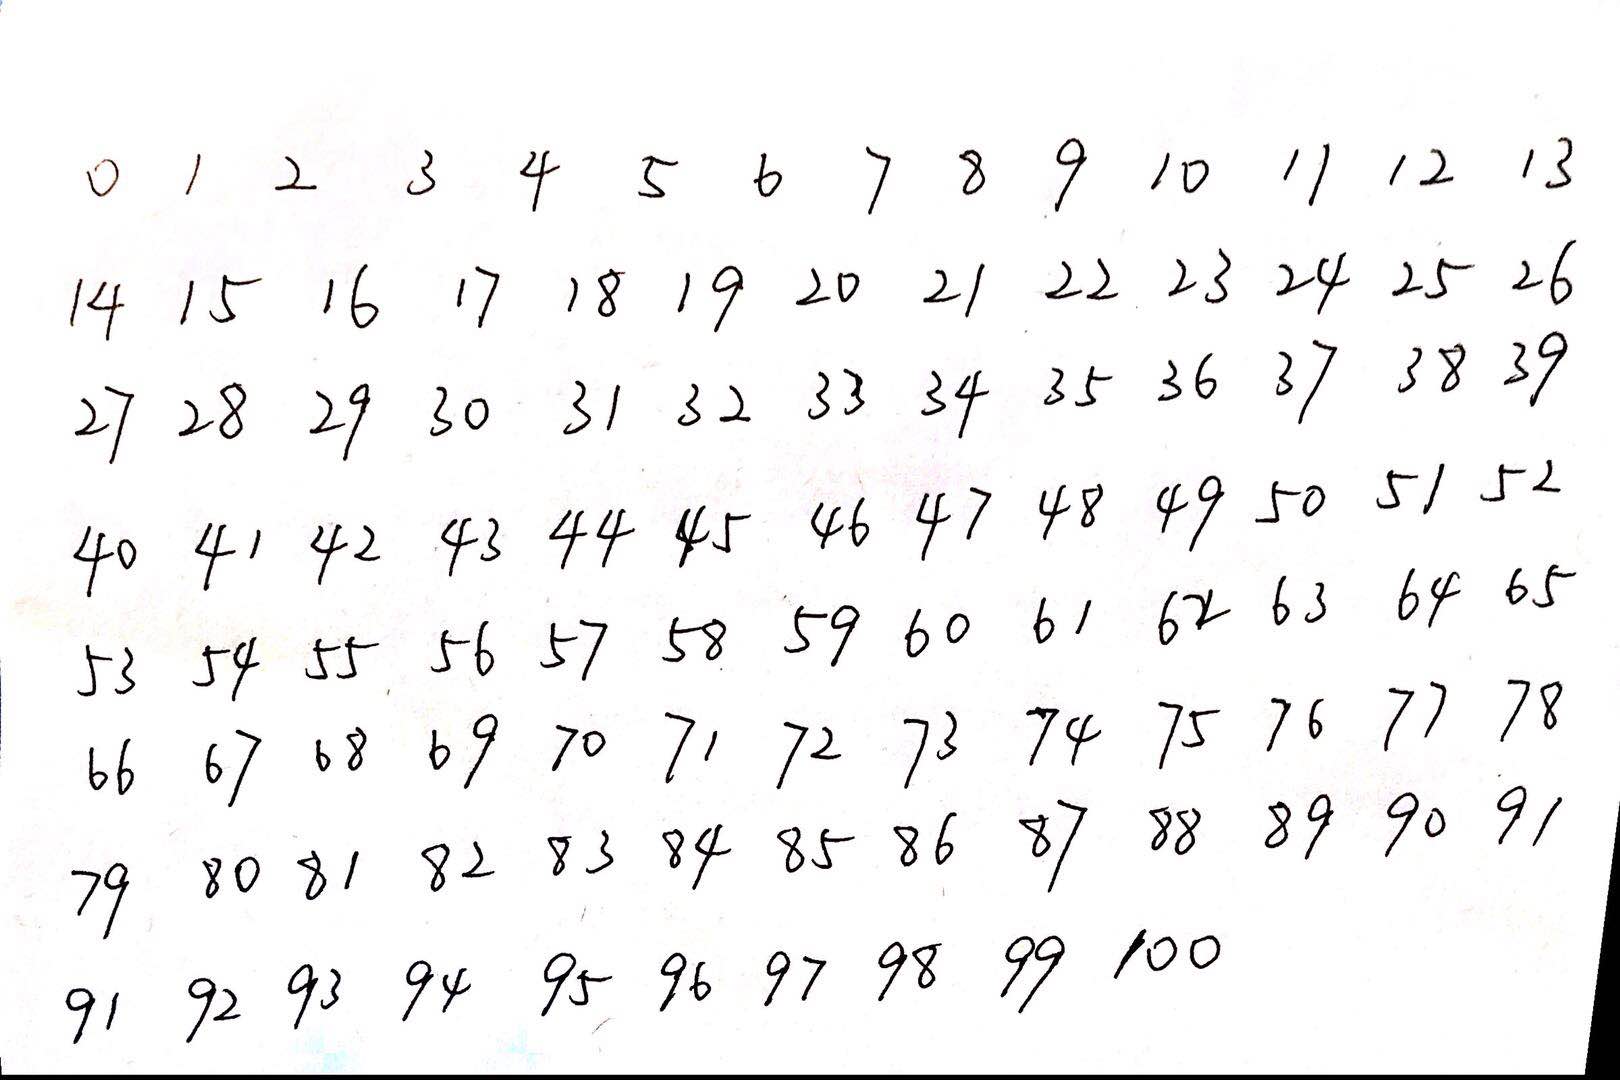 0 1 2 3 4 5 6 7 8 9 10 11 12 13
14 15 16 17 18 19 20 21 22 23 24 25 26
27 28 29 30 31 32 33 34 35 36 37 38 39
40 41 42 43 44 45 46 47 48 49 50 51 52
53 54 55 56 57 58 59 60 61 62 63 64 65
66 67 68 69 70 71 72 73 74 75 76 77 78
79 80 81 82 83 84 85 86 87 88 89 90 91
91 92 93 94 95 96 97 98 99 100